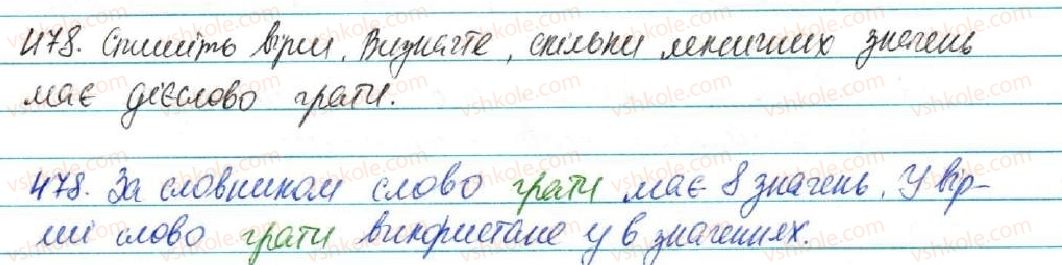 478. Спишіть вірш. Визначте, скільки лексичних значень
має дієслово грати.
478. За словником слово грати має 8 значень. У вір-
ші слово грати використане у 6 значеннях.